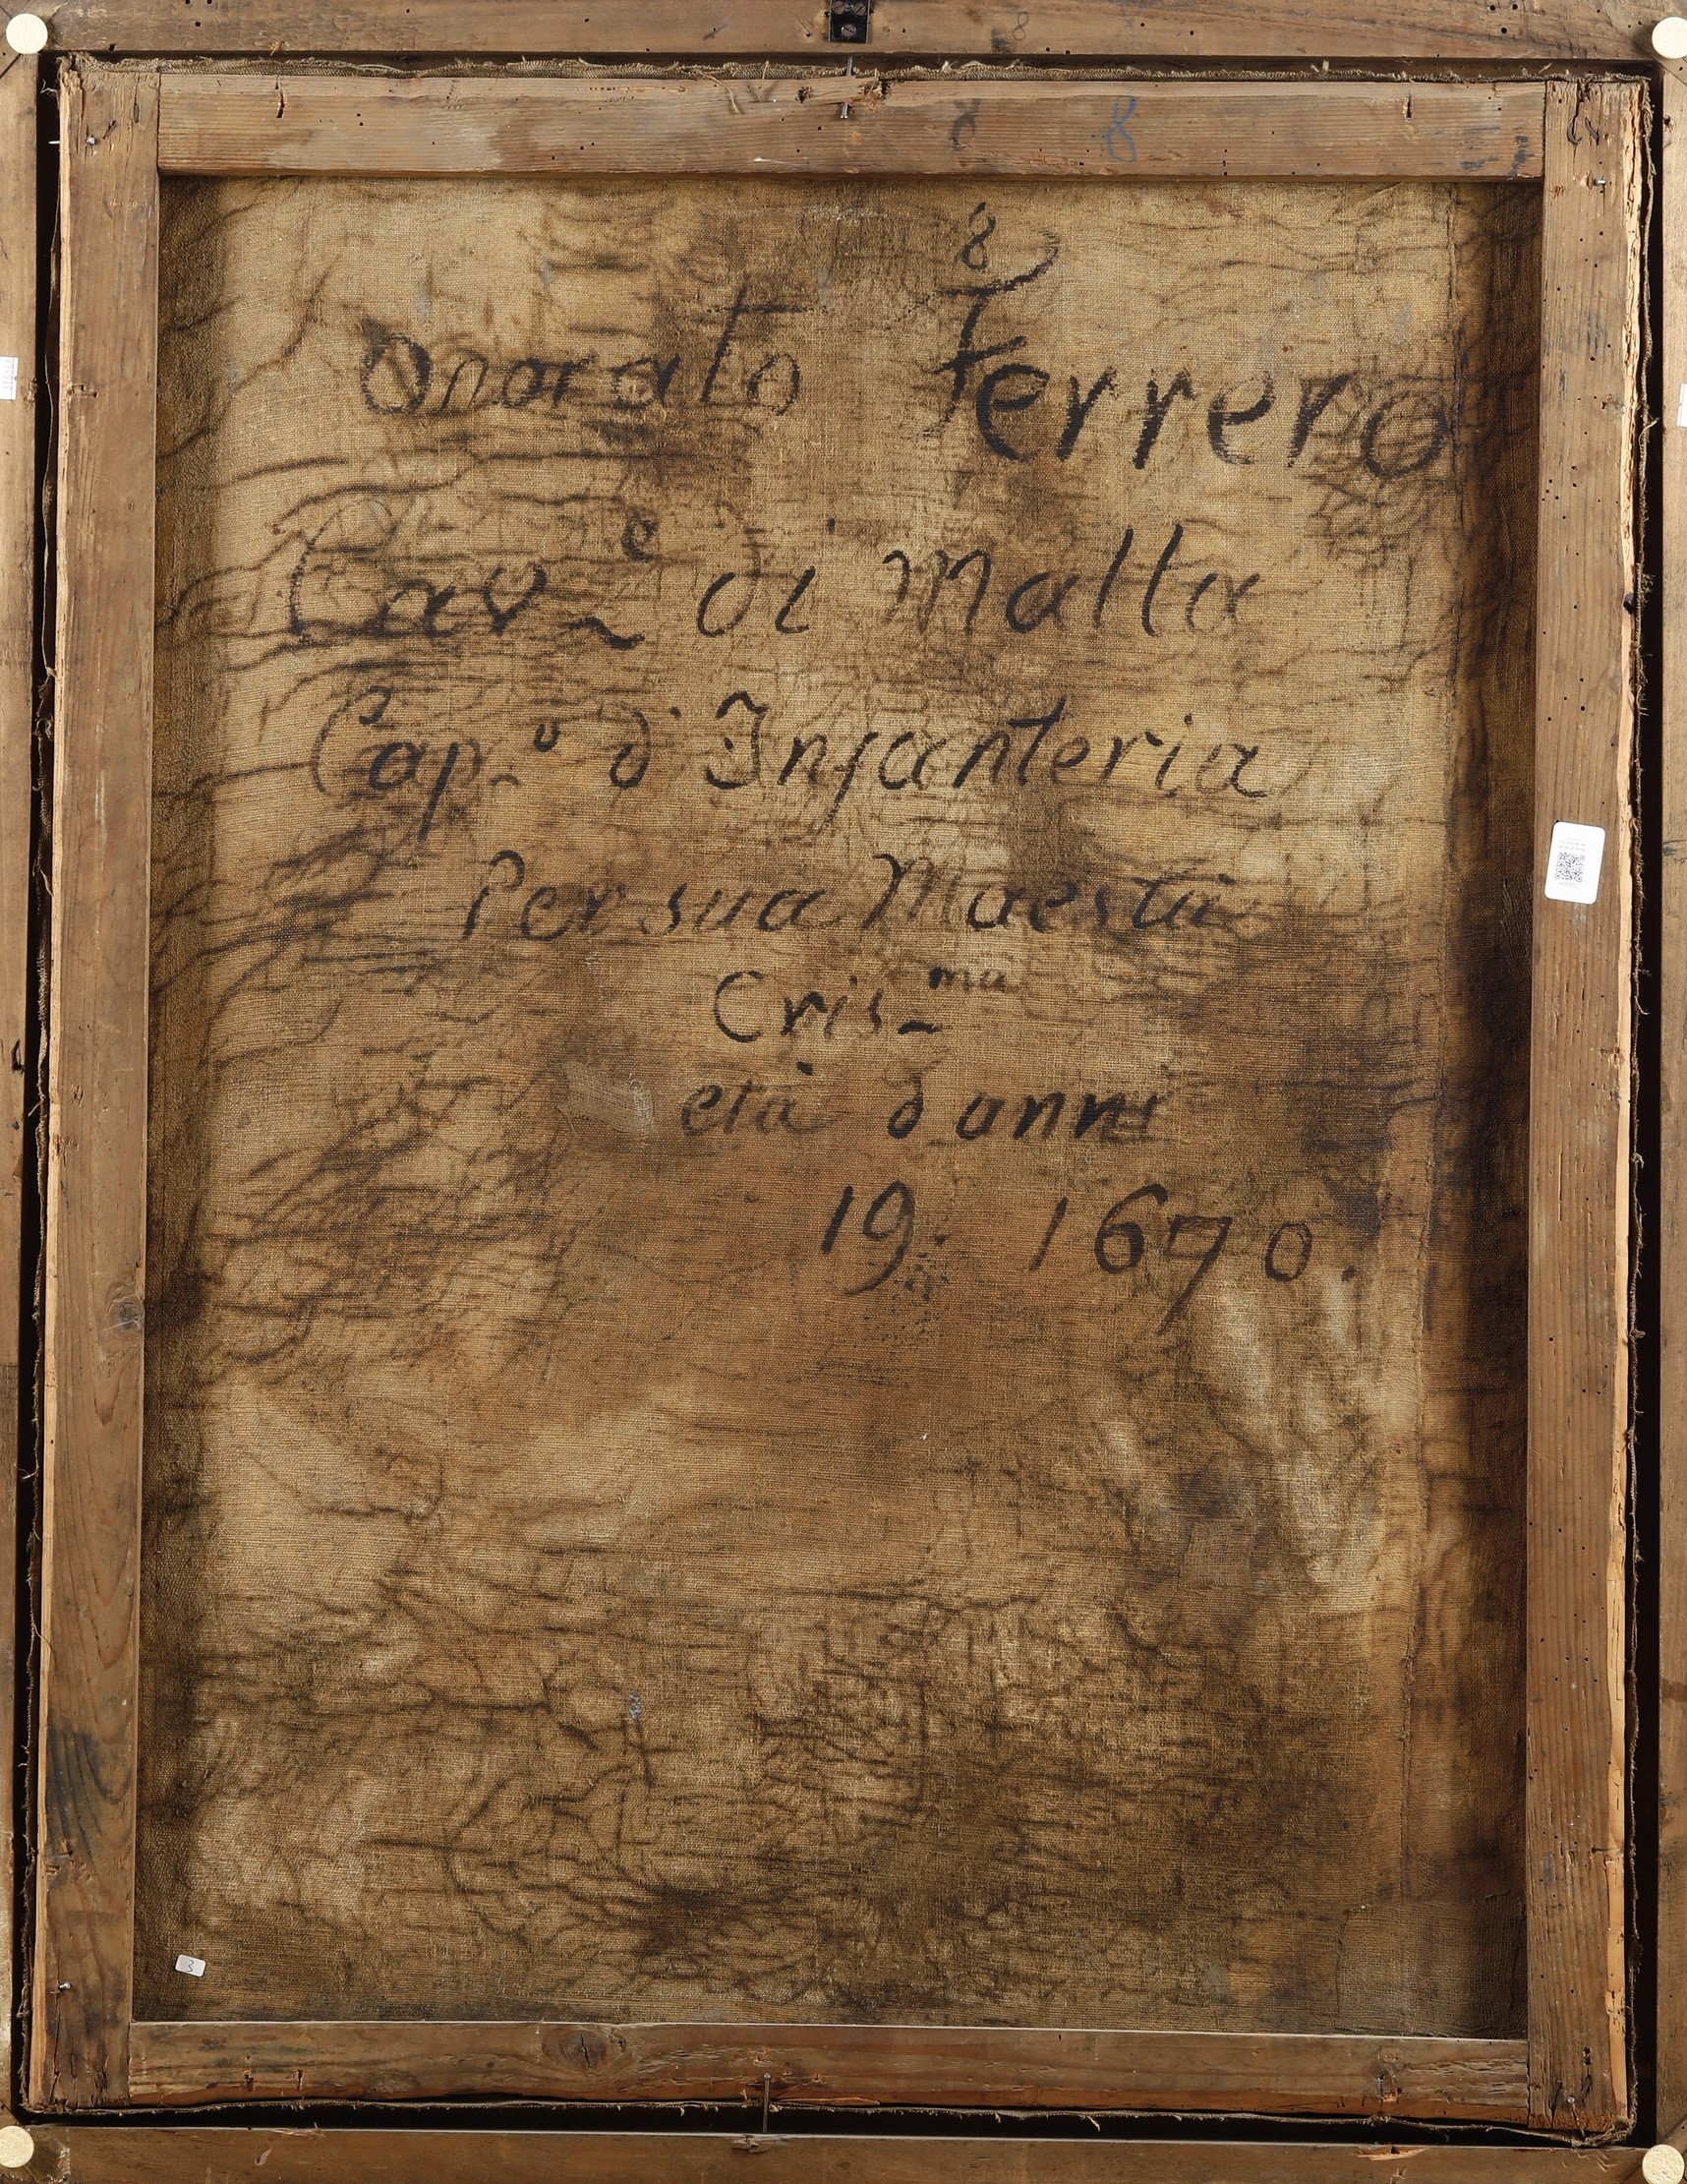 8
8
8
8
Onorato Ferrero
Cav.e di Malta
Cap.o d'Infanteria
Per sua Maestà
Cris.ma
età d anni
19. 1670.
3